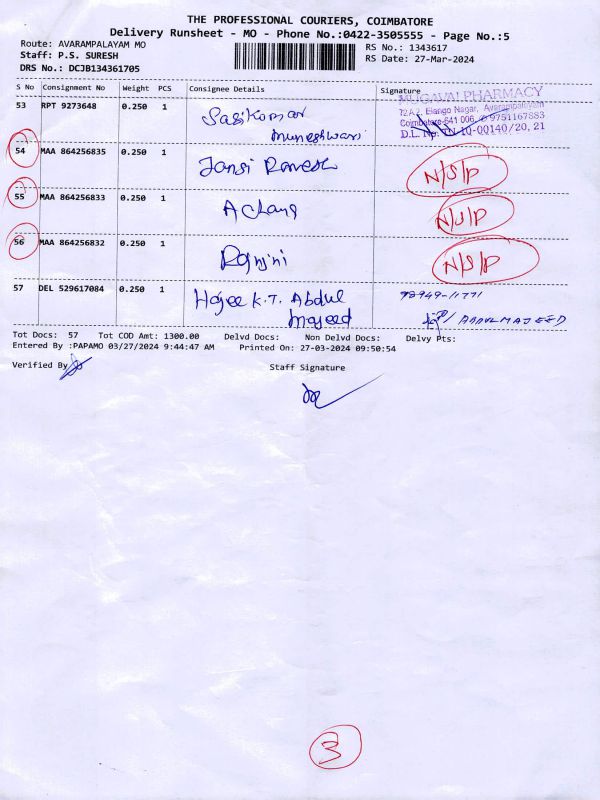 THE PROFESSIONAL COURIERS, COIMBATORE
Delivery Runsheet - MO - Phone No.:0422-3505555 - Page No.:5
Route: AVARAMPALAYAM MO
RS No.: 1343617
Staff: P.S. SURESH
RS Date: 27-Mar-2024
DRS No.: DCJB134361705
S No Consignment No Weight PCS Consignee Details Signature
MUGAVAI PHARMACY
53 RPT 9273648 0.250 1 Sasikumar
72A2, Elango Nagar, Avarampalayam
muneshwari
Coimbatore-641 006. ✆ 9751167883
D.L. No. TN-10-00140/20, 21
54 MAA 864256835 0.250 1 Jansi Ramesh N/S/P
55 MAA 864256833 0.250 1 A Chang N/S/P
56 MAA 864256832 0.250 1 Ranjini N/S/P
57 DEL 529617084 0.250 1 Hajee K.T. Abdul
majeed
/ ABDUL MAJEED
Tot Docs: 57 Tot COD Amt: 1300.00 Delvd Docs: Non Delvd Docs: Delvy Pts:
Entered By :PAPAMO 03/27/2024 9:44:47 AM Printed On: 27-03-2024 09:50:54
Verified By
Staff Signature
3